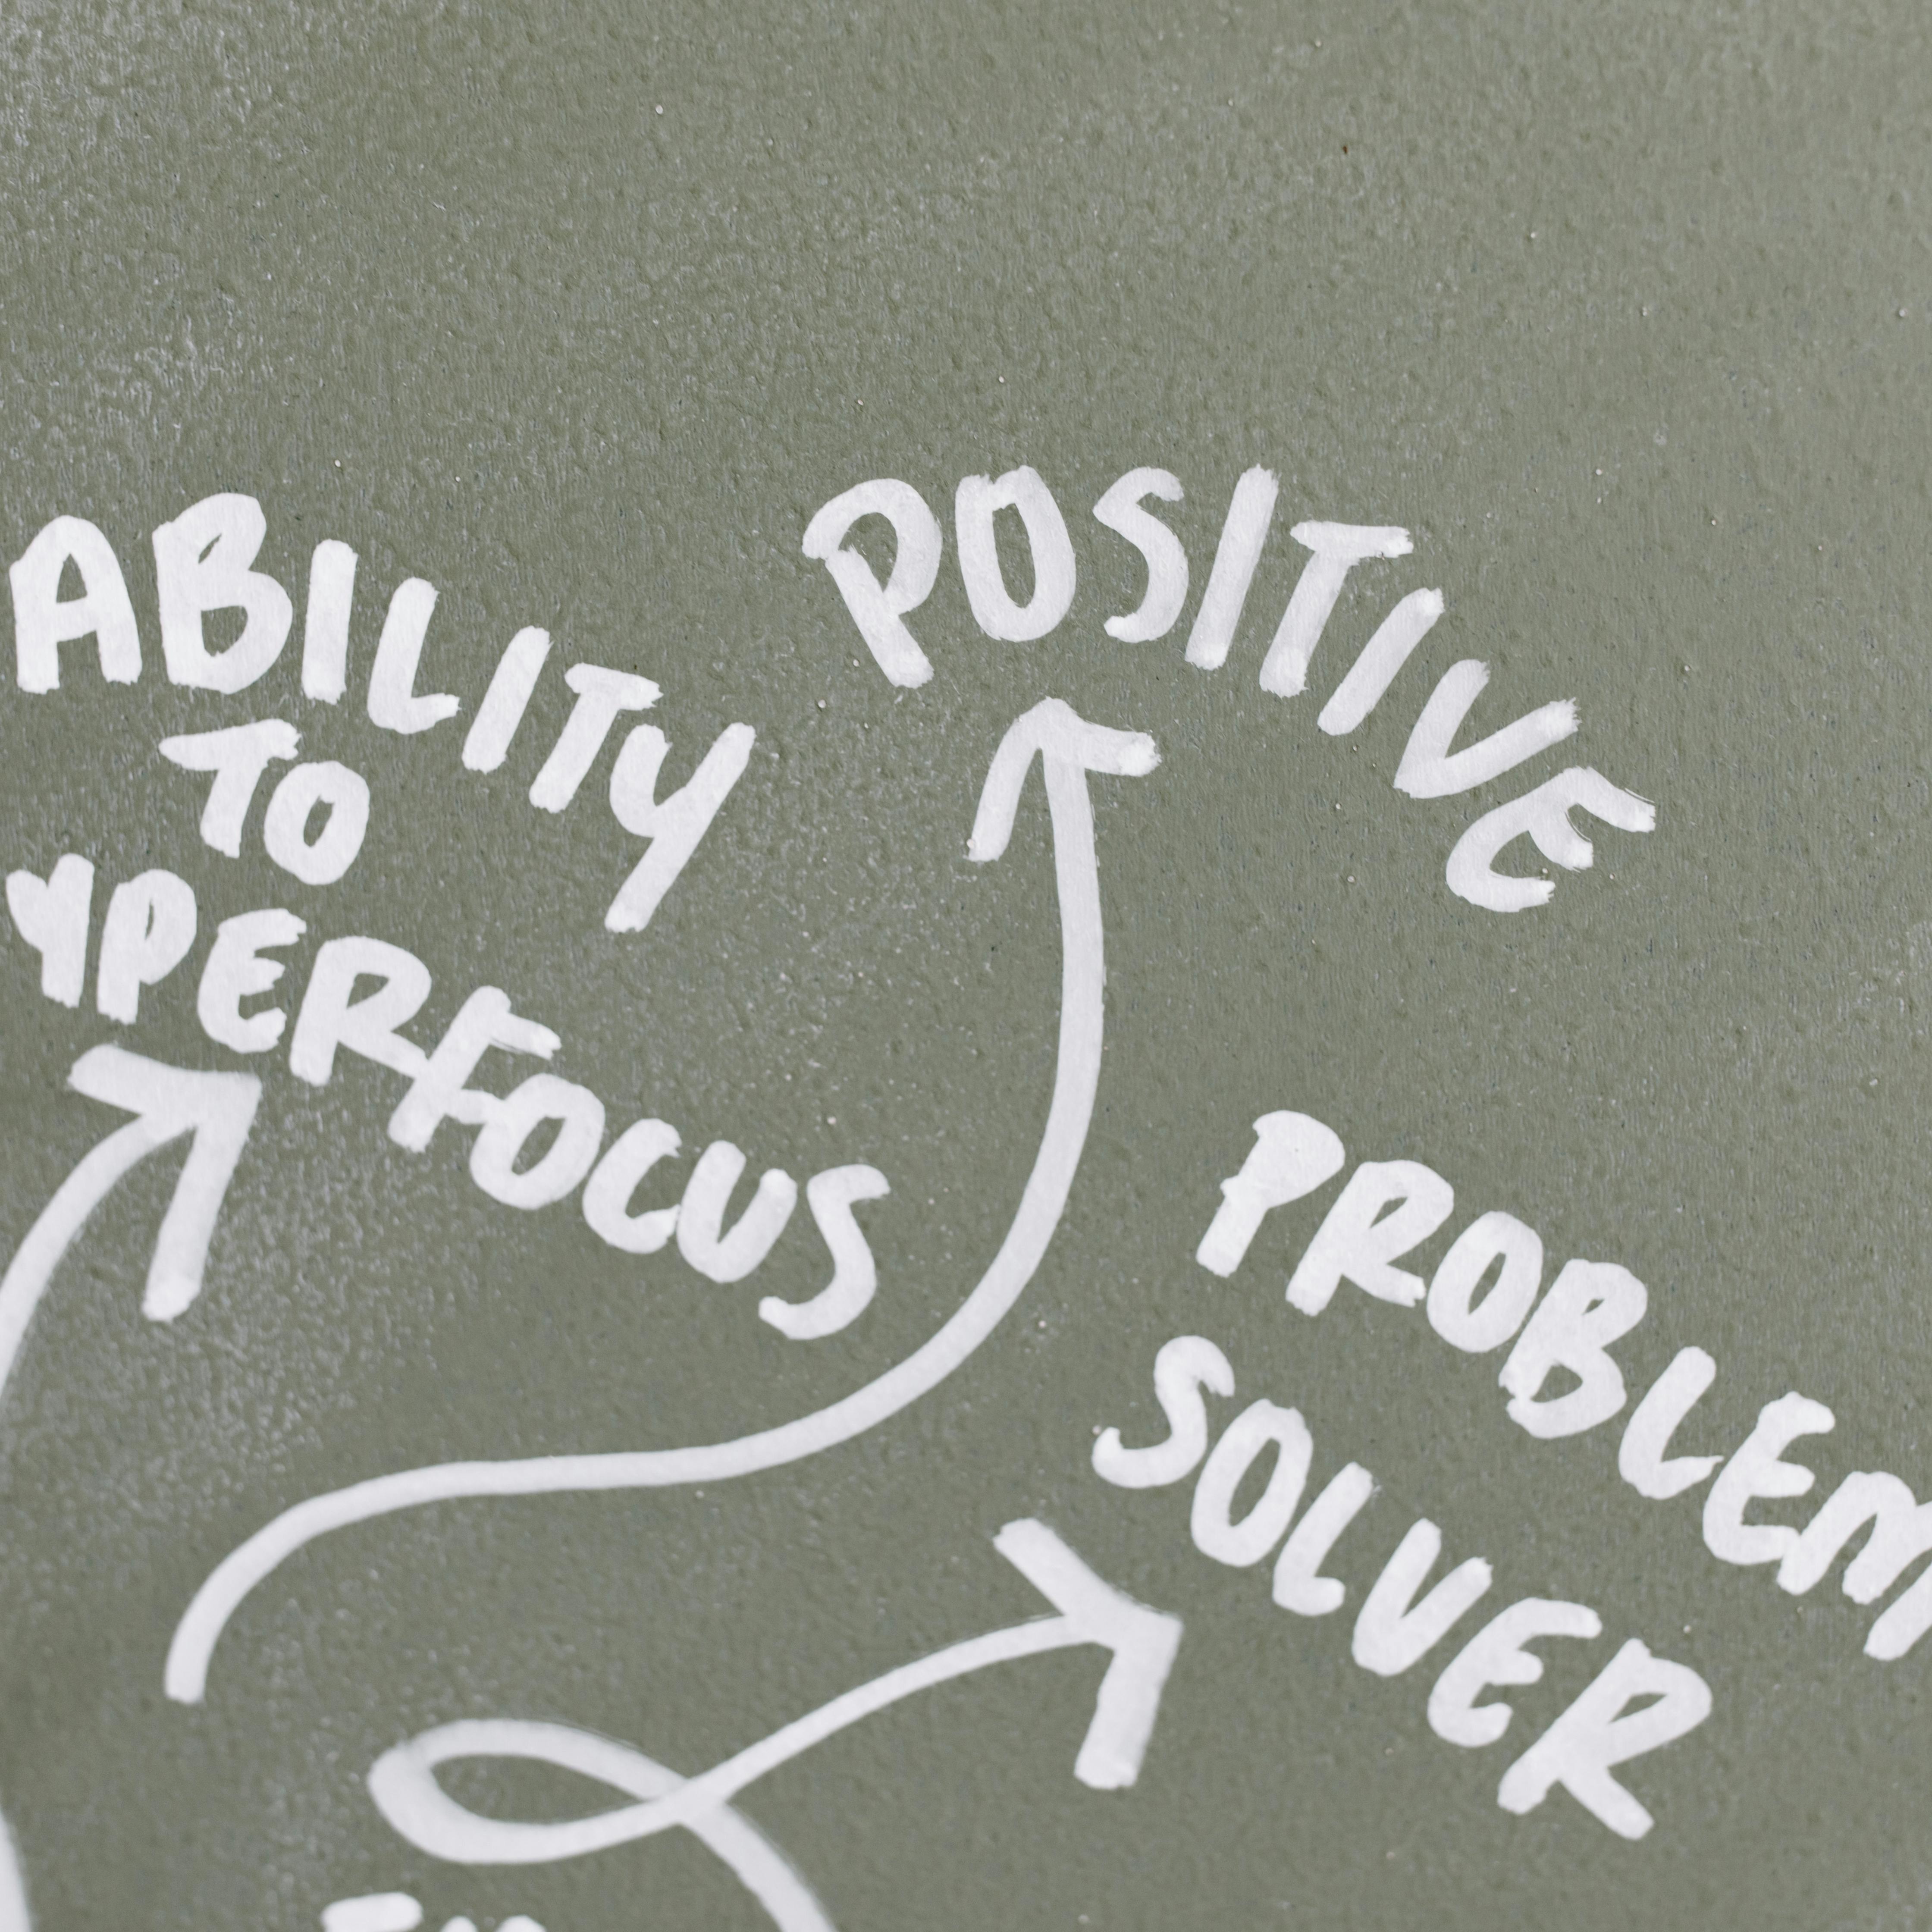 ABILITY
TO
YPERFOCUS
POSITIVE
PROBLEM
SOLVER